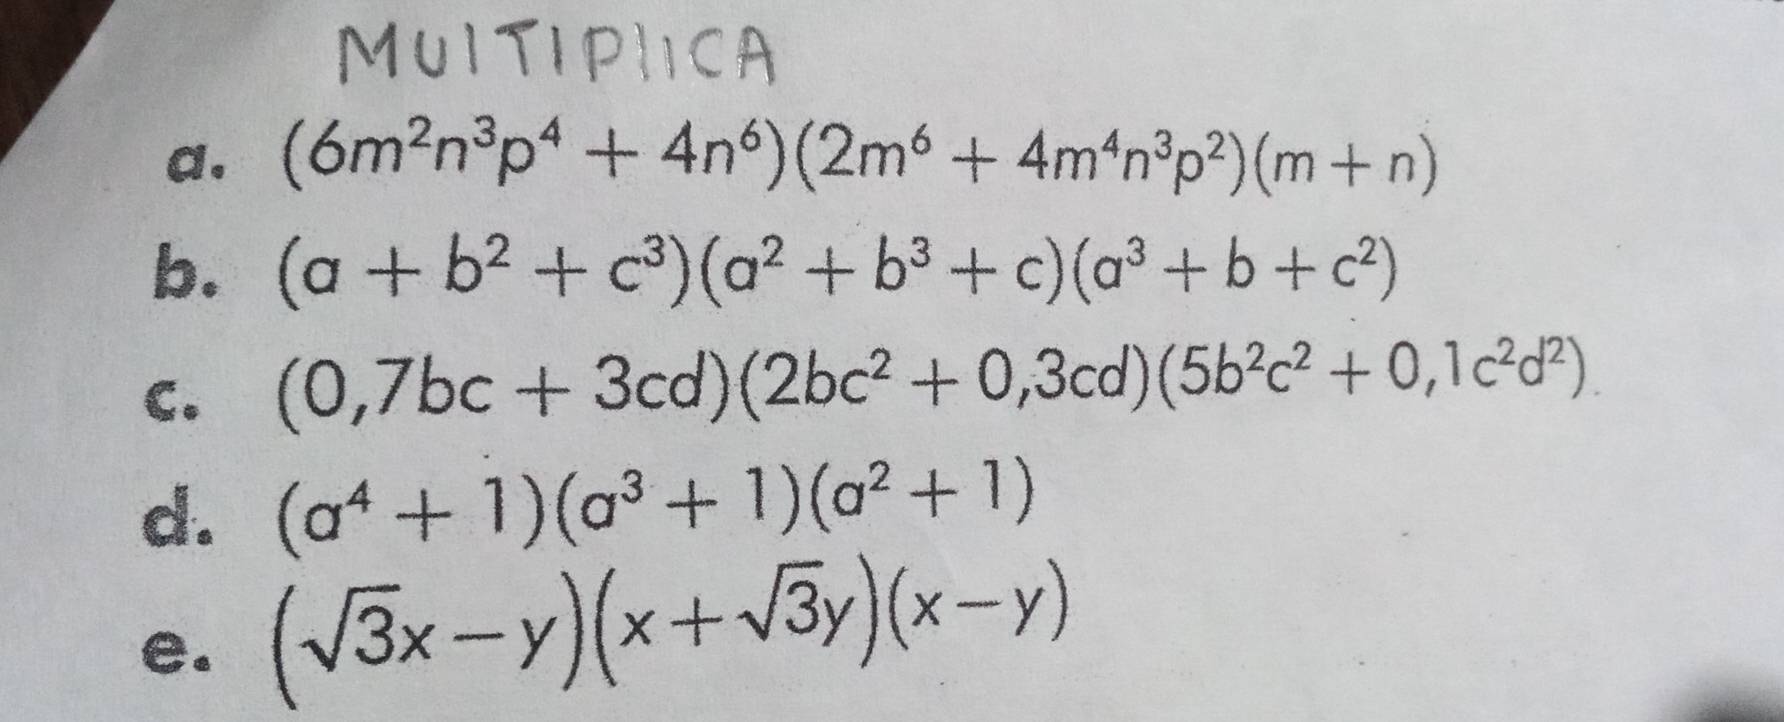 MULTIPLICA
a. (6m²n³p⁴ + 4n⁶)(2m⁶ + 4m⁴n³p²)(m + n)
b. (a + b² + c³)(a² + b³ + c)(a³ + b + c²)
c. (0,7bc + 3cd)(2bc² + 0,3cd)(5b²c² + 0,1c²d²).
d. (a⁴ + 1)(a³ + 1)(a² + 1)
e. (√3x − y)(x + √3y)(x − y)